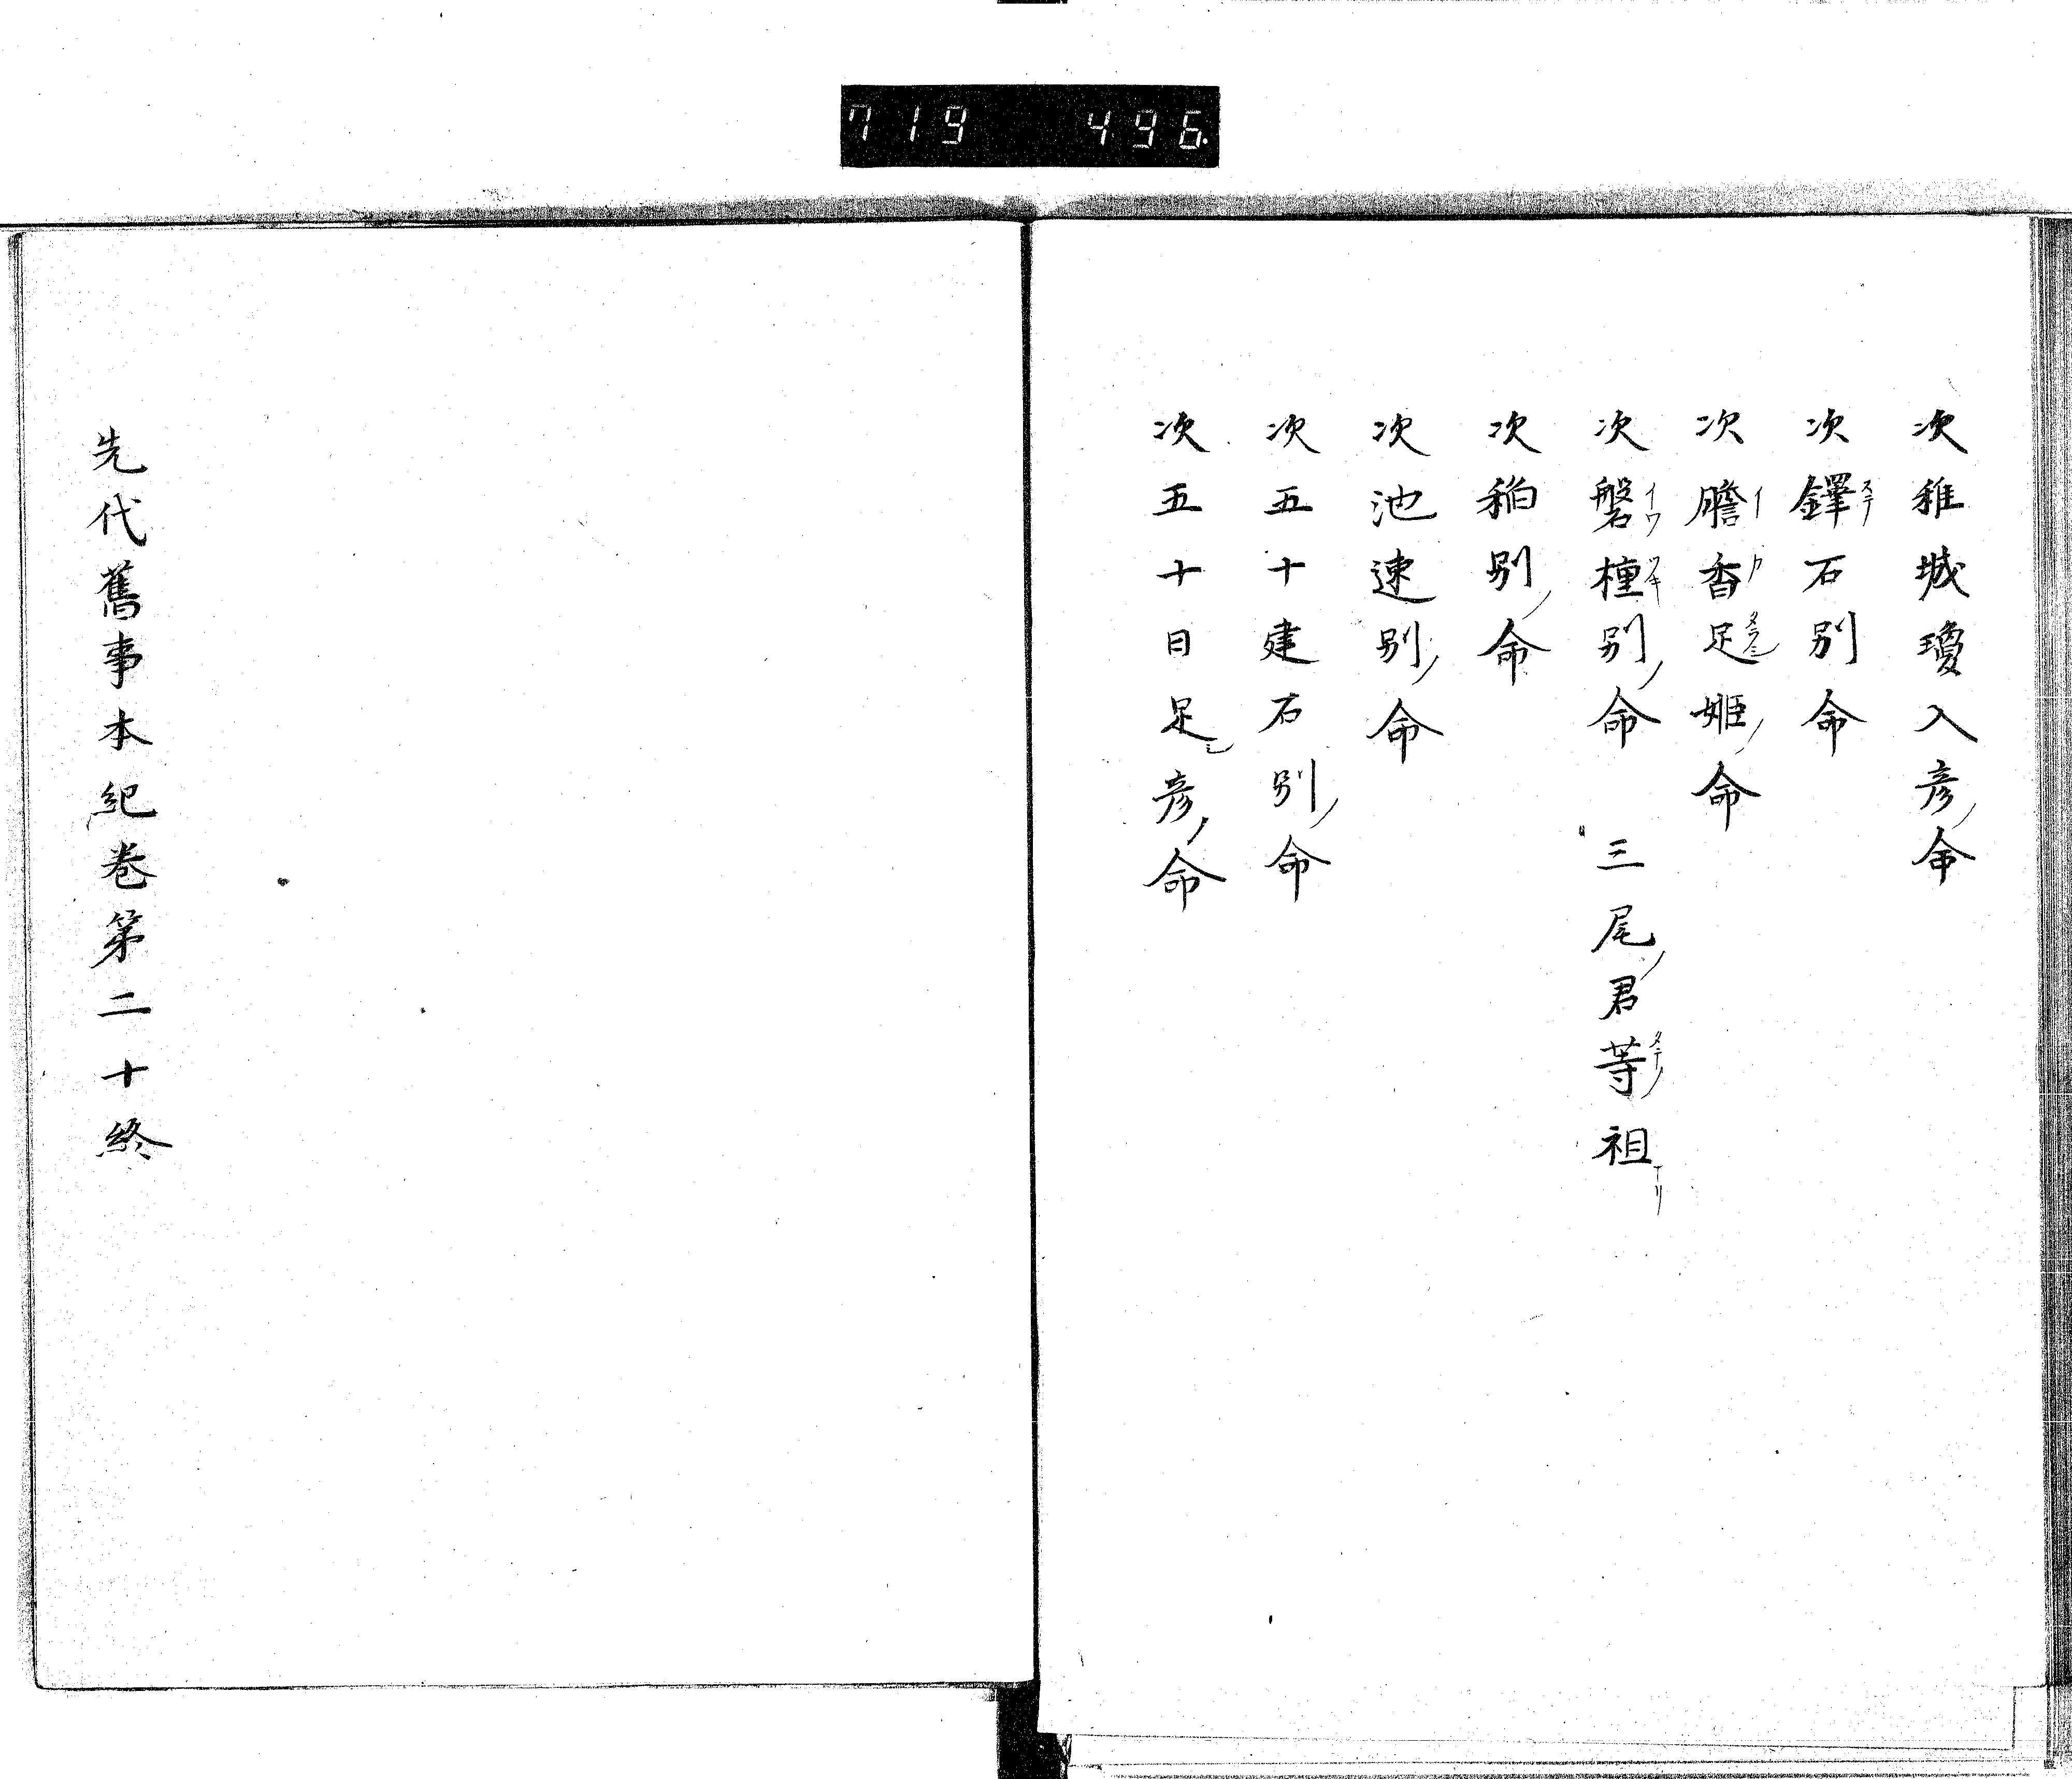 719 496
次稚城瓊入彦ノ命
次鐸石別命
次膽香足姫ノ命
次磐橦別ノ命 三尾ノ君等祖
次稻別ノ命
次池速別ノ命
次五十建石別ノ命
次五十日足シ彦ノ命
先代舊事本紀卷第二十終